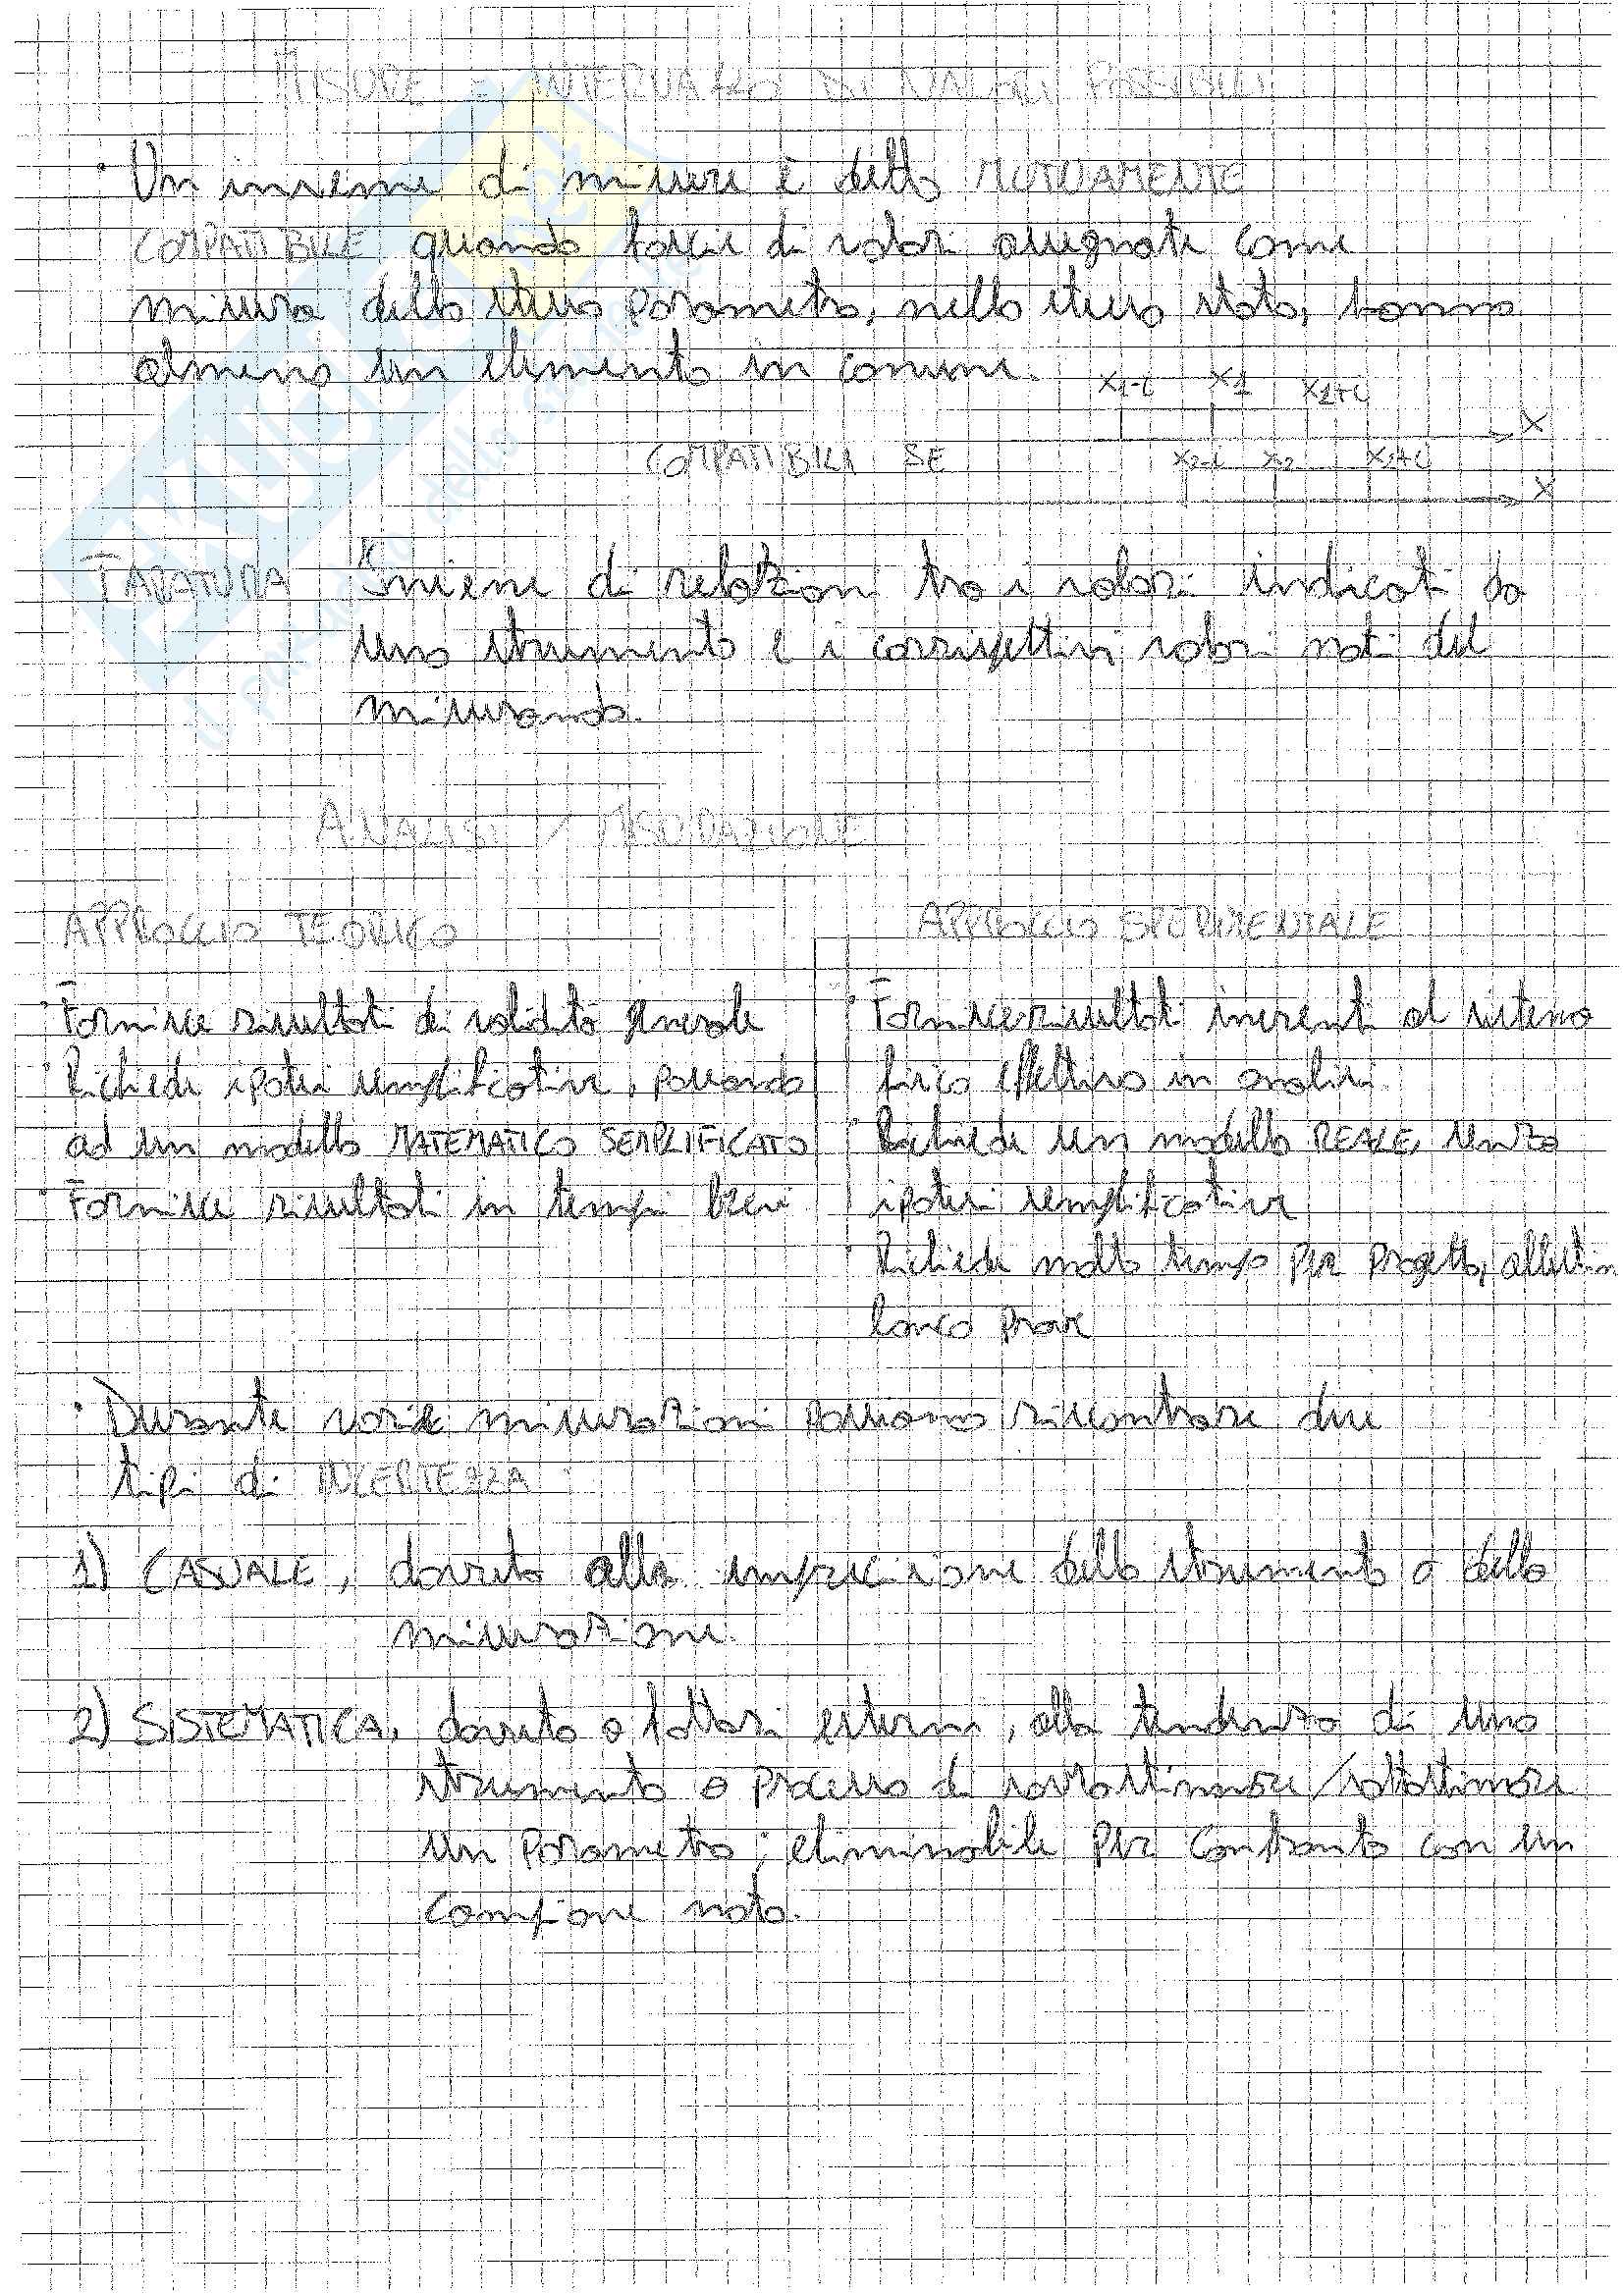 MISURE = INTERVALLO DI VALORI POSSIBILI
• Un insieme di misure è detto MUTUAMENTE
COMPATIBILE quando fasce di valori assegnate come
misura dello stesso parametro, nello stesso stato, hanno
almeno un elemento in comune.
x1-i x1 x1+i
x
COMPATIBILI SE x2-i x2 x2+i
x
TARATURA Insieme di relazioni tra i valori indicati da
uno strumento e i corrispettivi valori noti del
misurando.
ANALISI / MISURAZIONE
APPROCCIO TEORICO
• Fornisce risultati di validità generale
• Richiede ipotesi semplificative, passando
ad un modello MATEMATICO SEMPLIFICATO
• Fornisce risultati in tempi brevi
APPROCCIO SPERIMENTALE
• Fornisce risultati inerenti al sistema
fisico effettivo in analisi.
• Richiede un modello REALE, senza
ipotesi semplificative
• Richiede molto tempo per progetto,
prove
• Durante varie misurazioni possiamo riscontrare due
tipi di INCERTEZZA
1) CASUALE, dovuta alla imprecisione dello strumento o della
misurazione.
2) SISTEMATICA, dovuta a fattori esterni, alla tendenza di uno
strumento o processo di sovrastimare/sottostimare
un parametro; eliminabile per confronto con un
campione noto.